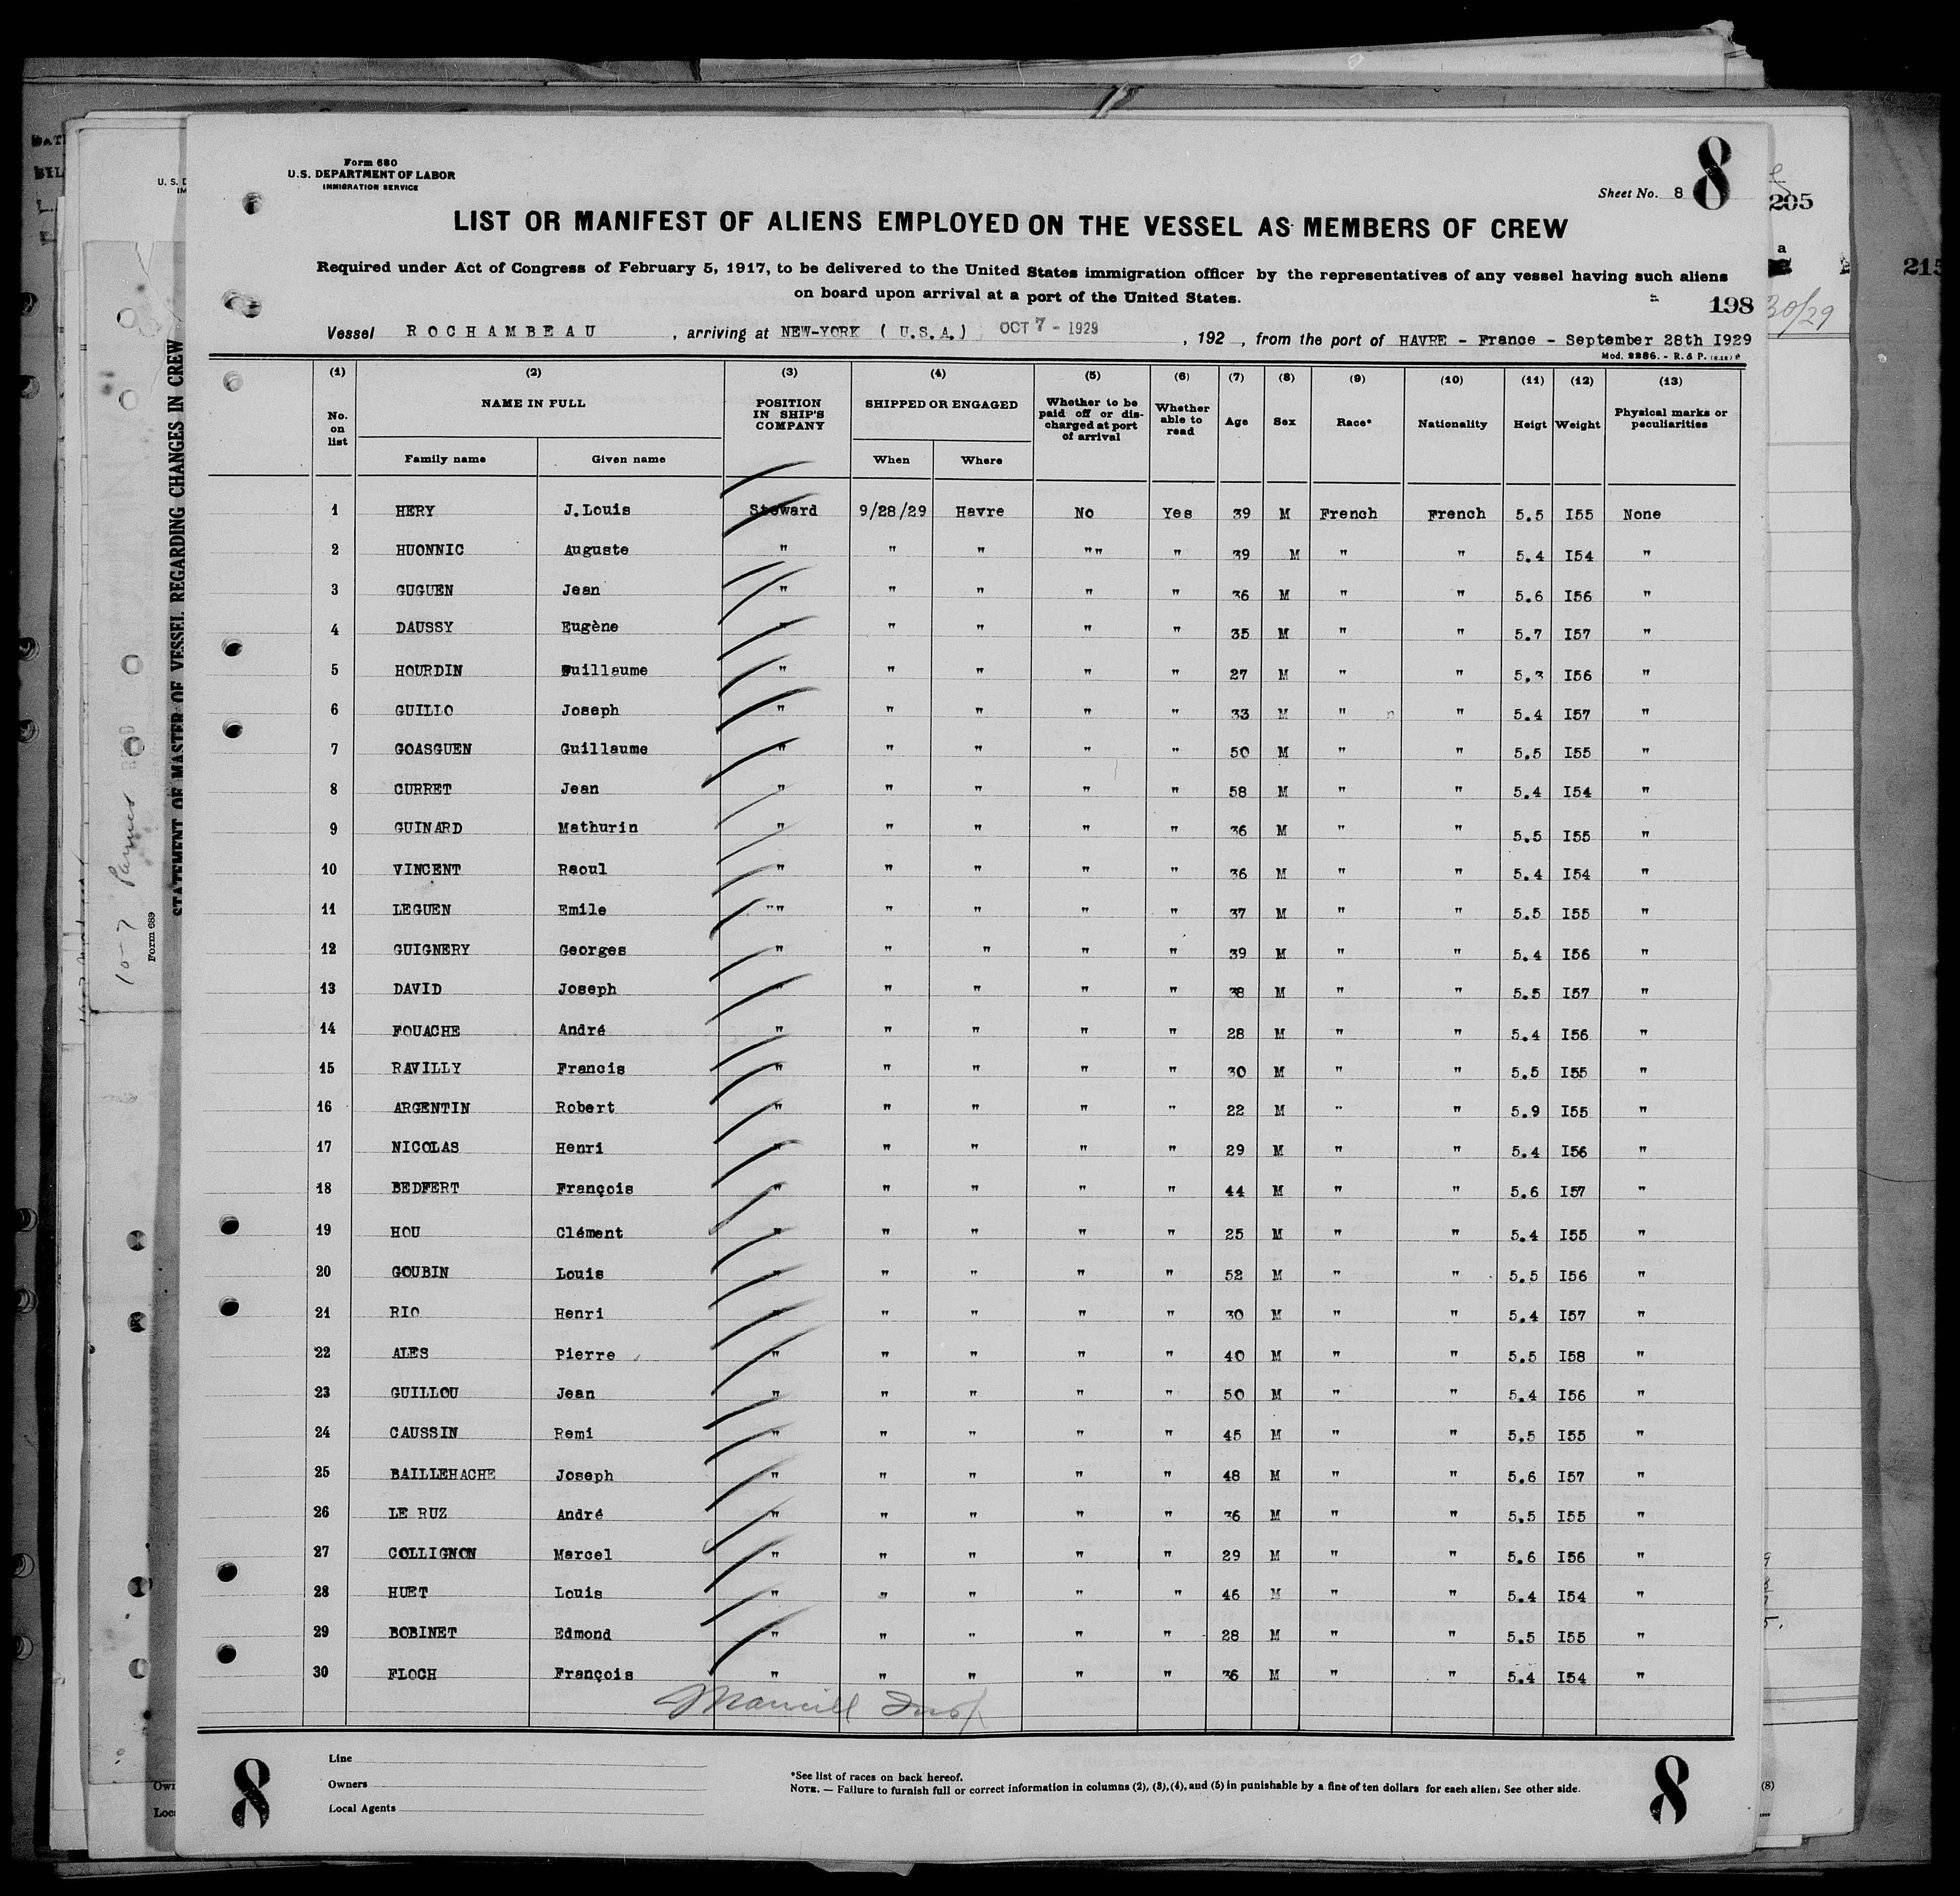 Form 680
U.S. DEPARTMENT OF LABOR
IMMIGRATION SERVICE
Sheet No. 8 8
LIST OR MANIFEST OF ALIENS EMPLOYED ON THE VESSEL AS MEMBERS OF CREW
Required under Act of Congress of February 5, 1917, to be delivered to the United States immigration officer by the representatives of any vessel having such aliens
on board upon arrival at a port of the United States.
198
Vessel ROCHAMBEAU , arriving at NEW-YORK ( U.S.A.) OCT 7 - 1929 , 192 , from the port of HAVRE - France - September 28th I929
Mod. 2286. - R. & P.
(1) (2) (3) (4) (5) (6) (7) (8) (9) (10) (11) (12) (13)
No. on list NAME IN FULL POSITION IN SHIP'S COMPANY SHIPPED OR ENGAGED Whether to be paid off or discharged at port of arrival Whether able to read Age Sex Race* Nationality Heigt Weight Physical marks or peculiarities
Family name Given name When Where
1 HERY J.Louis Steward 9/28/29 Havre No Yes 39 M French French 5.5 I55 None
2 HUONNIC Auguste " " " "" " 39 M " " 5.4 I54 "
3 GUGUEN Jean " " " " " 36 M " " 5.6 I56 "
4 DAUSSY Eugène " " " " " 35 M " " 5.7 I57 "
5 HOURDIN Guillaume " " " " " 27 M " " 5.3 I56 "
6 GUILLO Joseph " " " " " 33 M " " 5.4 I57 "
7 GOASGUEN Guillaume " " " " " 50 M " " 5.5 I55 "
8 CURRET Jean " " " " " 58 M " " 5.4 I54 "
9 GUINARD Mathurin " " " " " 36 M " " 5.5 I55 "
10 VINCENT Raoul " " " " " 36 M " " 5.4 I54 "
11 LEGUEN Emile "" " " " " 37 M " " 5.5 I55 "
12 GUIGNERY Georges " " " " " 39 M " " 5.4 I56 "
13 DAVID Joseph " " " " " 38 M " " 5.5 I57 "
14 FOUACHE André " " " " " 28 M " " 5.4 I56 "
15 RAVILLY Francis " " " " " 30 M " " 5.5 I55 "
16 ARGENTIN Robert " " " " " 22 M " " 5.9 I55 "
17 NICOLAS Henri " " " " " 29 M " " 5.4 I56 "
18 BEDFERT François " " " " " 44 M " " 5.6 I57 "
19 HOU Clément " " " " " 25 M " " 5.4 I55 "
20 GOUBIN Louis " " " " " 52 M " " 5.5 I56 "
21 RIO Henri " " " " " 30 M " " 5.4 I57 "
22 ALES Pierre " " " " " 40 M " " 5.5 I58 "
23 GUILLOU Jean " " " " " 50 M " " 5.4 I56 "
24 CAUSSIN Remi " " " " " 45 M " " 5.5 I55 "
25 BAILLEHACHE Joseph " " " " " 48 M " " 5.6 I57 "
26 LE RUZ André " " " " " 36 M " " 5.5 I55 "
27 COLLIGNON Marcel " " " " " 29 M " " 5.6 I56 "
28 HUET Louis " " " " " 46 M " " 5.4 I54 "
29 BOBINET Edmond " " " " " 28 M " " 5.5 I55 "
30 FLOCH François " " " " " 36 M " " 5.4 I54 "
Line
Owners
Local Agents
*See list of races on back hereof.
NOTE. — Failure to furnish full or correct information in columns (2), (3), (4), and (5) in punishable by a fine of ten dollars for each alien. See other side.
8 8
STATEMENT OF MASTER OF VESSEL REGARDING CHANGES IN CREW
Form 689
205
215
30/29